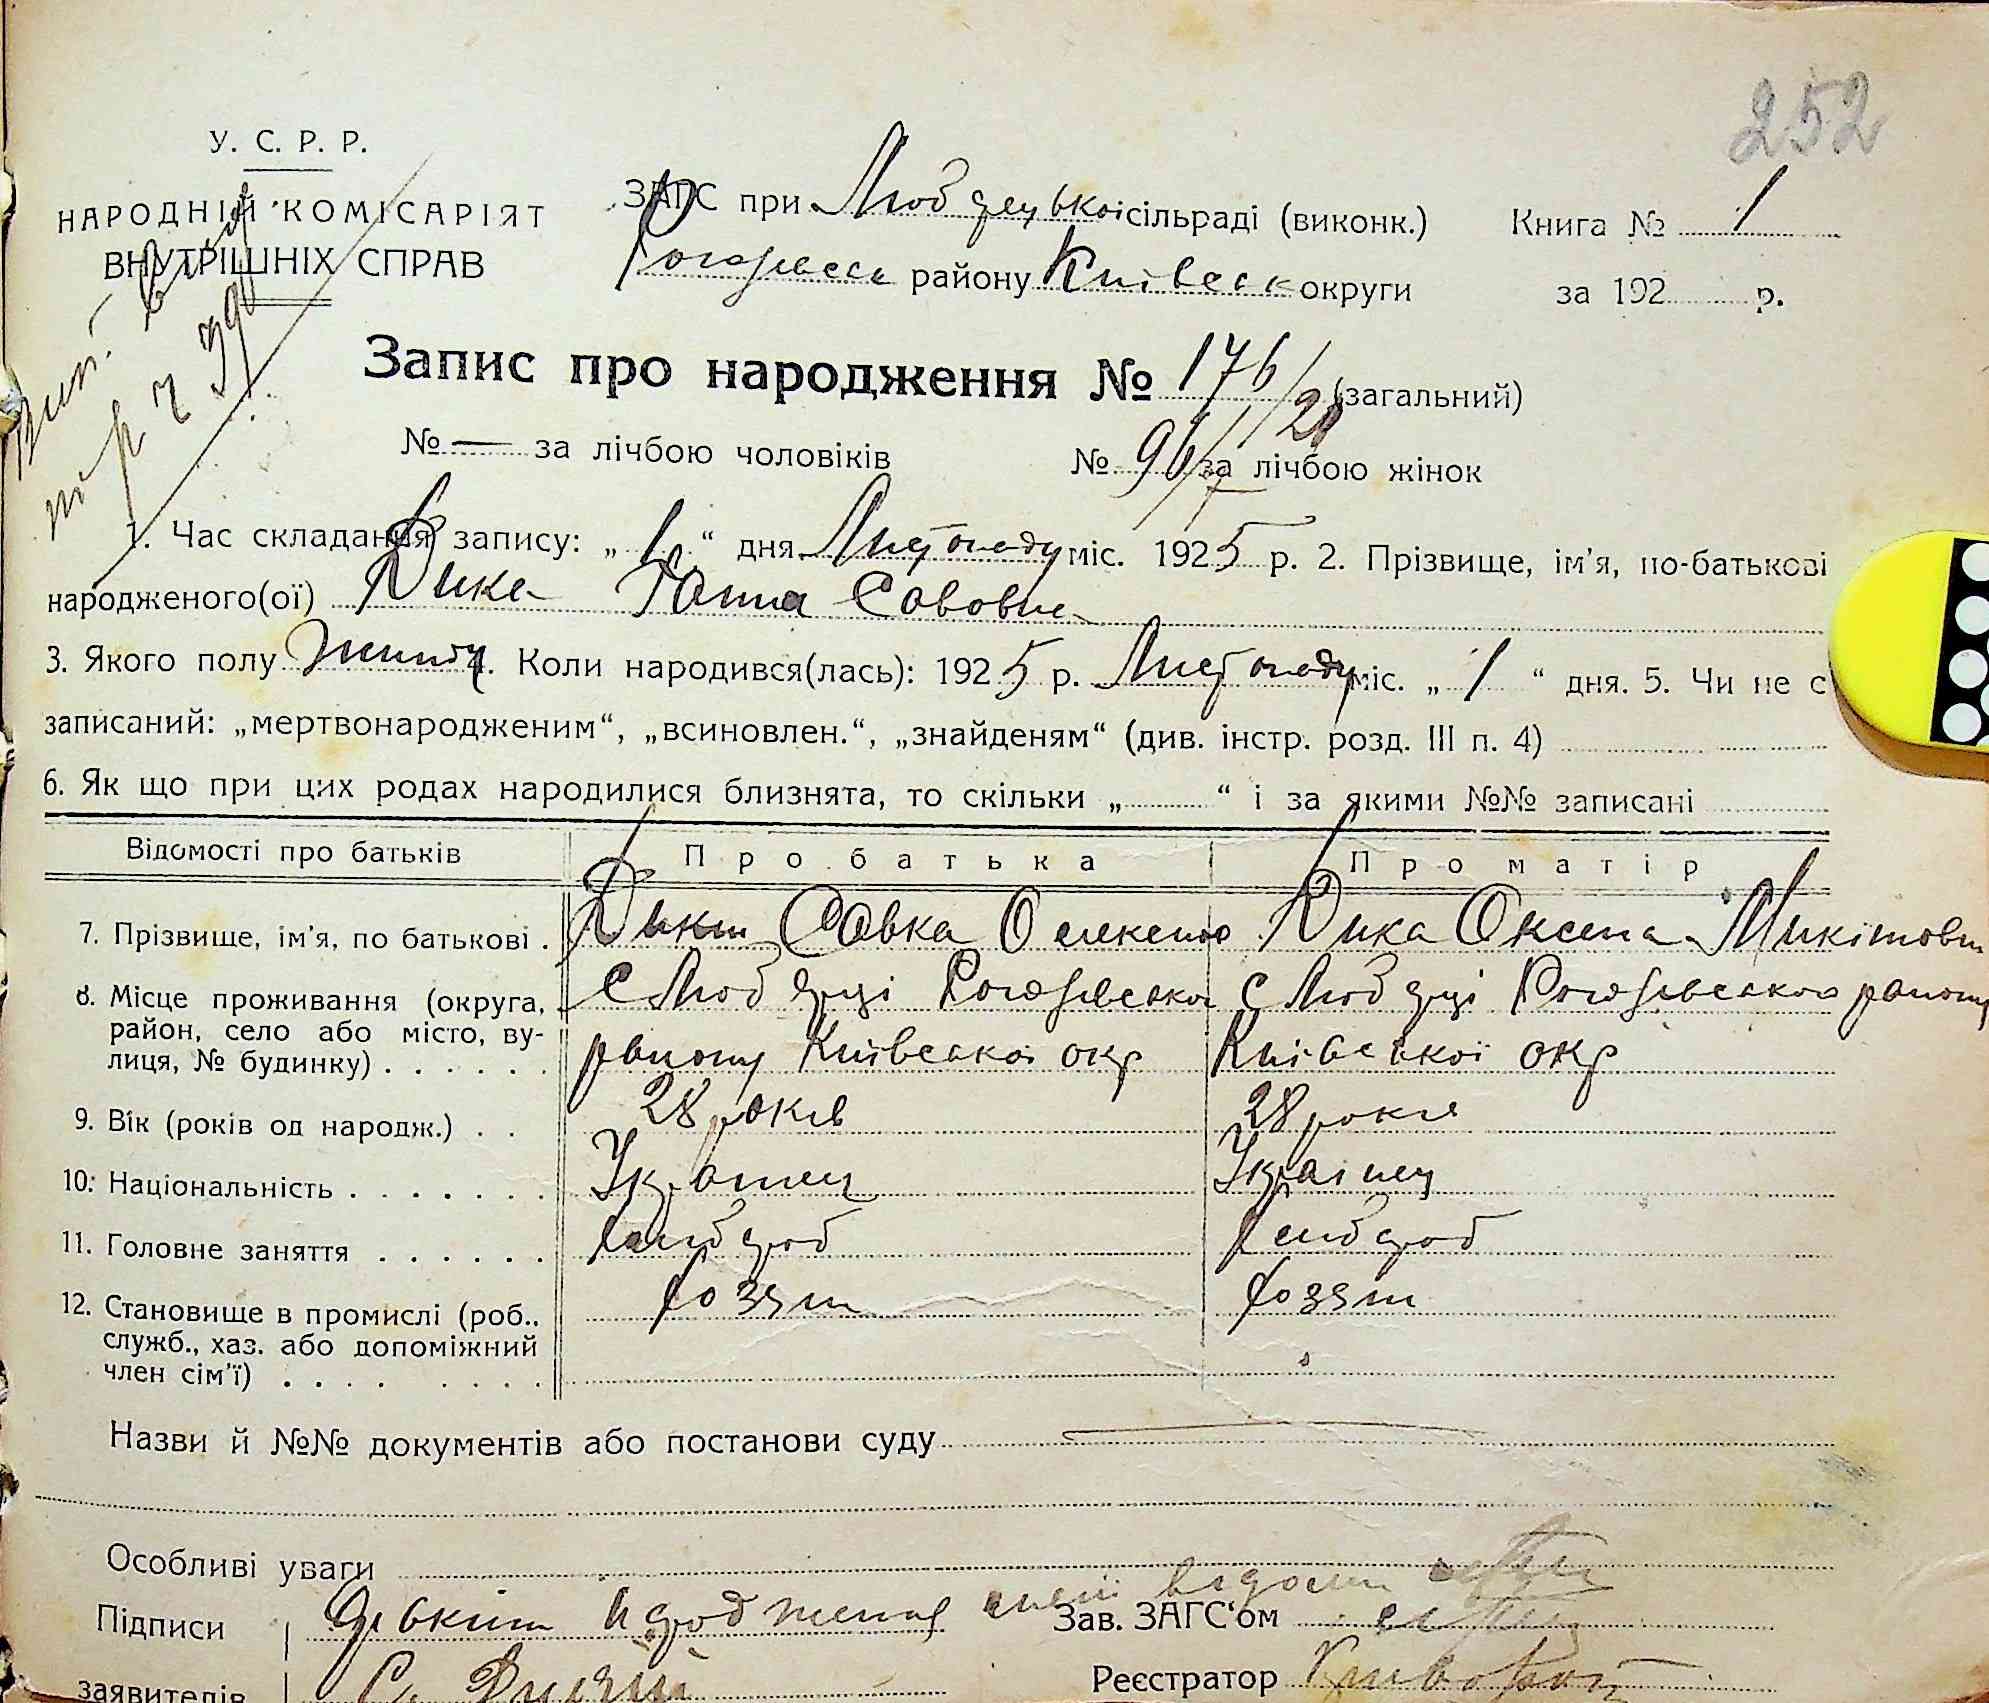 252
У. С. Р. Р.
НАРОДНІЙ КОМІСАРІЯТ
ВНУТРІШНІХ СПРАВ
ЗАГС при Любрецької сільраді (виконк.) Книга № 1
району Київськ округи за 192 р.
Запис про народження № 176/ (загальний)
№ — за лічбою чоловіків № 96/ за лічбою жінок
1. Час складання запису: „ “ дня Листопаду міс. 1925 р. 2. Прізвище, ім'я, по-батькові
народженого(ої) Дика Ганна Савовна
3. Якого полу Жіноч 4. Коли народився(лась): 1925 р. Листопаду міс. „ 1 “ дня. 5. Чи не є
записаний: „мертвонародженим“, „всиновлен.“, „знайденям“ (див. інстр. розд. III п. 4)
6. Як що при цих родах народилися близнята, то скільки „ “ і за якими №№ записані
Відомості про батьків Про батька Про матір
7. Прізвище, ім'я, по батькові . Дикий Савка Дика Оксена Микітовн
8. Місце проживання (округа, с Любрці с Любрці району
район, село або місто, ву-
лиця, № будинку) . . . . . . району Київської окр Київської окр
9. Вік (років од народж.) . . 28 років 28 років
10. Національність . . . . . . . Українец Українец
11. Головне заняття . . . . . . хлібороб хлібороб
12. Становище в промислі (роб., хозяин хозяин
служб., хаз. або допоміжний
член сім'ї) . . . . . . . .
Назви й №№ документів або постанови суду
Особливі уваги
Підписи народження Зав. ЗАГС'ом
заявителів Реєстратор